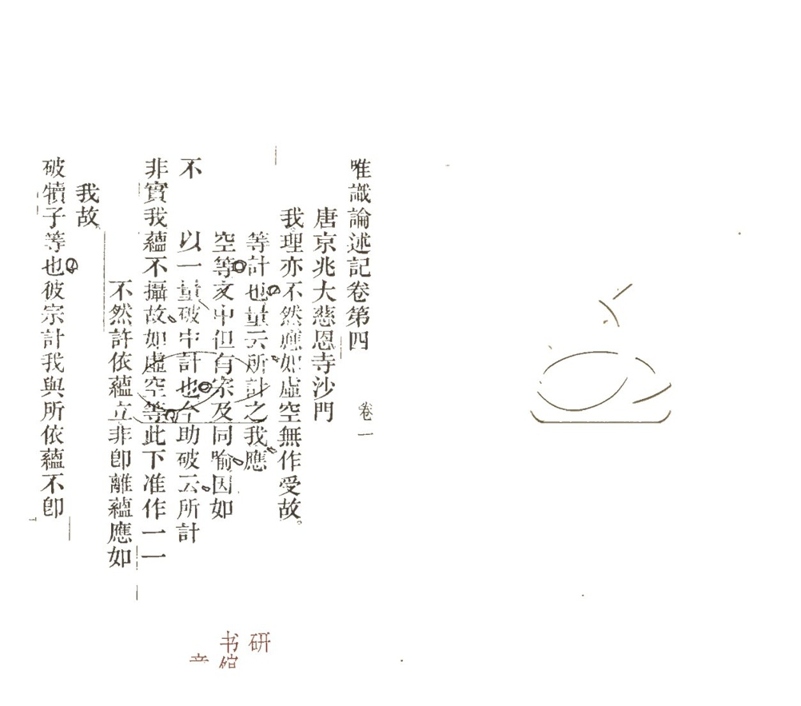 唯識論述記卷第四 卷一
唐京兆大慈恩寺沙門
我理亦不然應如虛空無作受故。
等計也量云所計之我應
空等文中但有宗及同喻因如
不 以一量破中計也今助破云所計
非實我蘊不攝故如虛空等此下准作一一
不然許依蘊立非卽離蘊應如
我故
破犢子等也彼宗計我與所依蘊不卽
研
书